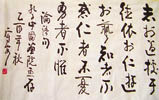 志於道據於
德依於仁遊
於藝知者不
惑仁者不憂
勇者不懼
論語句
中國畫院惠存
乙酉年秋